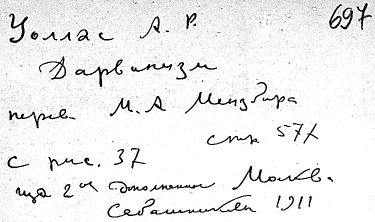 697
Уоллас А. Р.
Дарвинизм
перев. М. А Мензбира
стр 571
с рис. 37
изд 2ое дополненное Москв.
Сабашников 1911